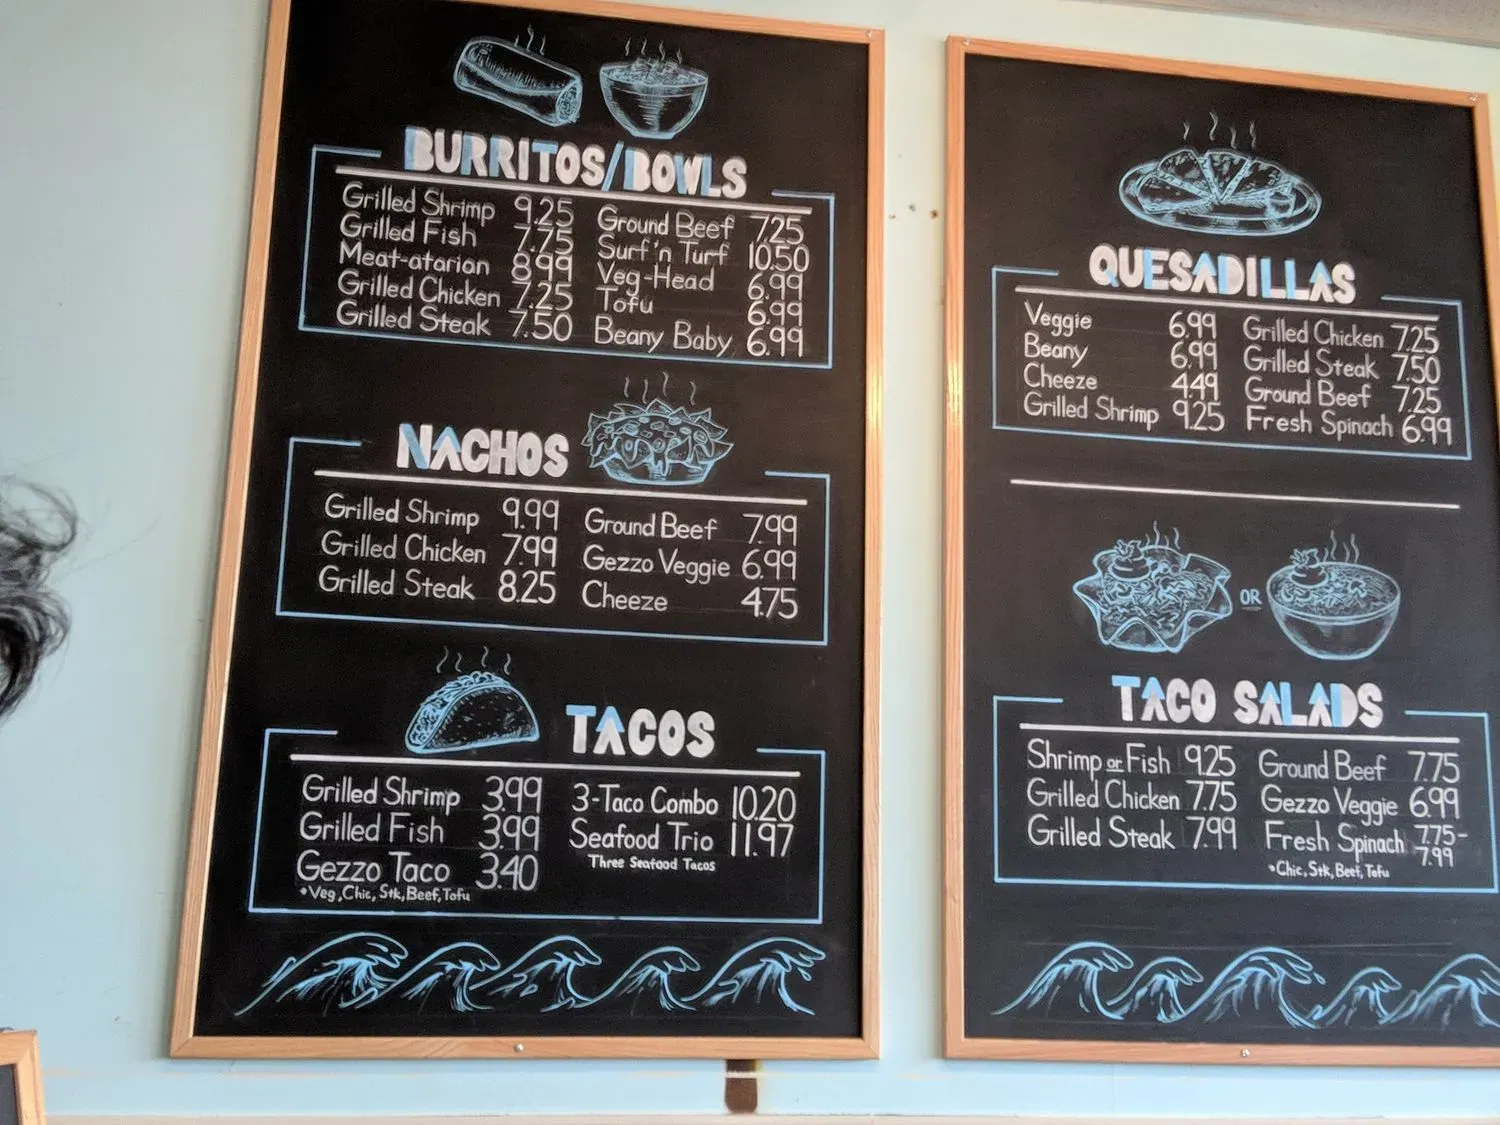 BURRITOS/BOWLS
Grilled Shrimp 9.25
Grilled Fish 7.75
Meat-atarian 8.99
Grilled Chicken 7.25
Grilled Steak 7.50
Ground Beef 7.25
Surf 'n Turf 10.50
Veg-Head 6.99
Tofu 6.99
Beany Baby 6.99
NACHOS
Grilled Shrimp 9.99
Grilled Chicken 7.99
Grilled Steak 8.25
Ground Beef 7.99
Gezzo Veggie 6.99
Cheeze 4.75
TACOS
Grilled Shrimp 3.99
Grilled Fish 3.99
Gezzo Taco 3.40
*Veg, Chic, Stk, Beef, Tofu
3-Taco Combo 10.20
Seafood Trio 11.97
Three Seafood Tacos
QUESADILLAS
Veggie 6.99
Beany 6.99
Cheeze 4.49
Grilled Shrimp 9.25
Grilled Chicken 7.25
Grilled Steak 7.50
Ground Beef 7.25
Fresh Spinach 6.99
OR
TACO SALADS
Shrimp or Fish 9.25
Grilled Chicken 7.75
Grilled Steak 7.99
Ground Beef 7.75
Gezzo Veggie 6.99
Fresh Spinach 7.75-
7.99
*Chic, Stk, Beef, Tofu